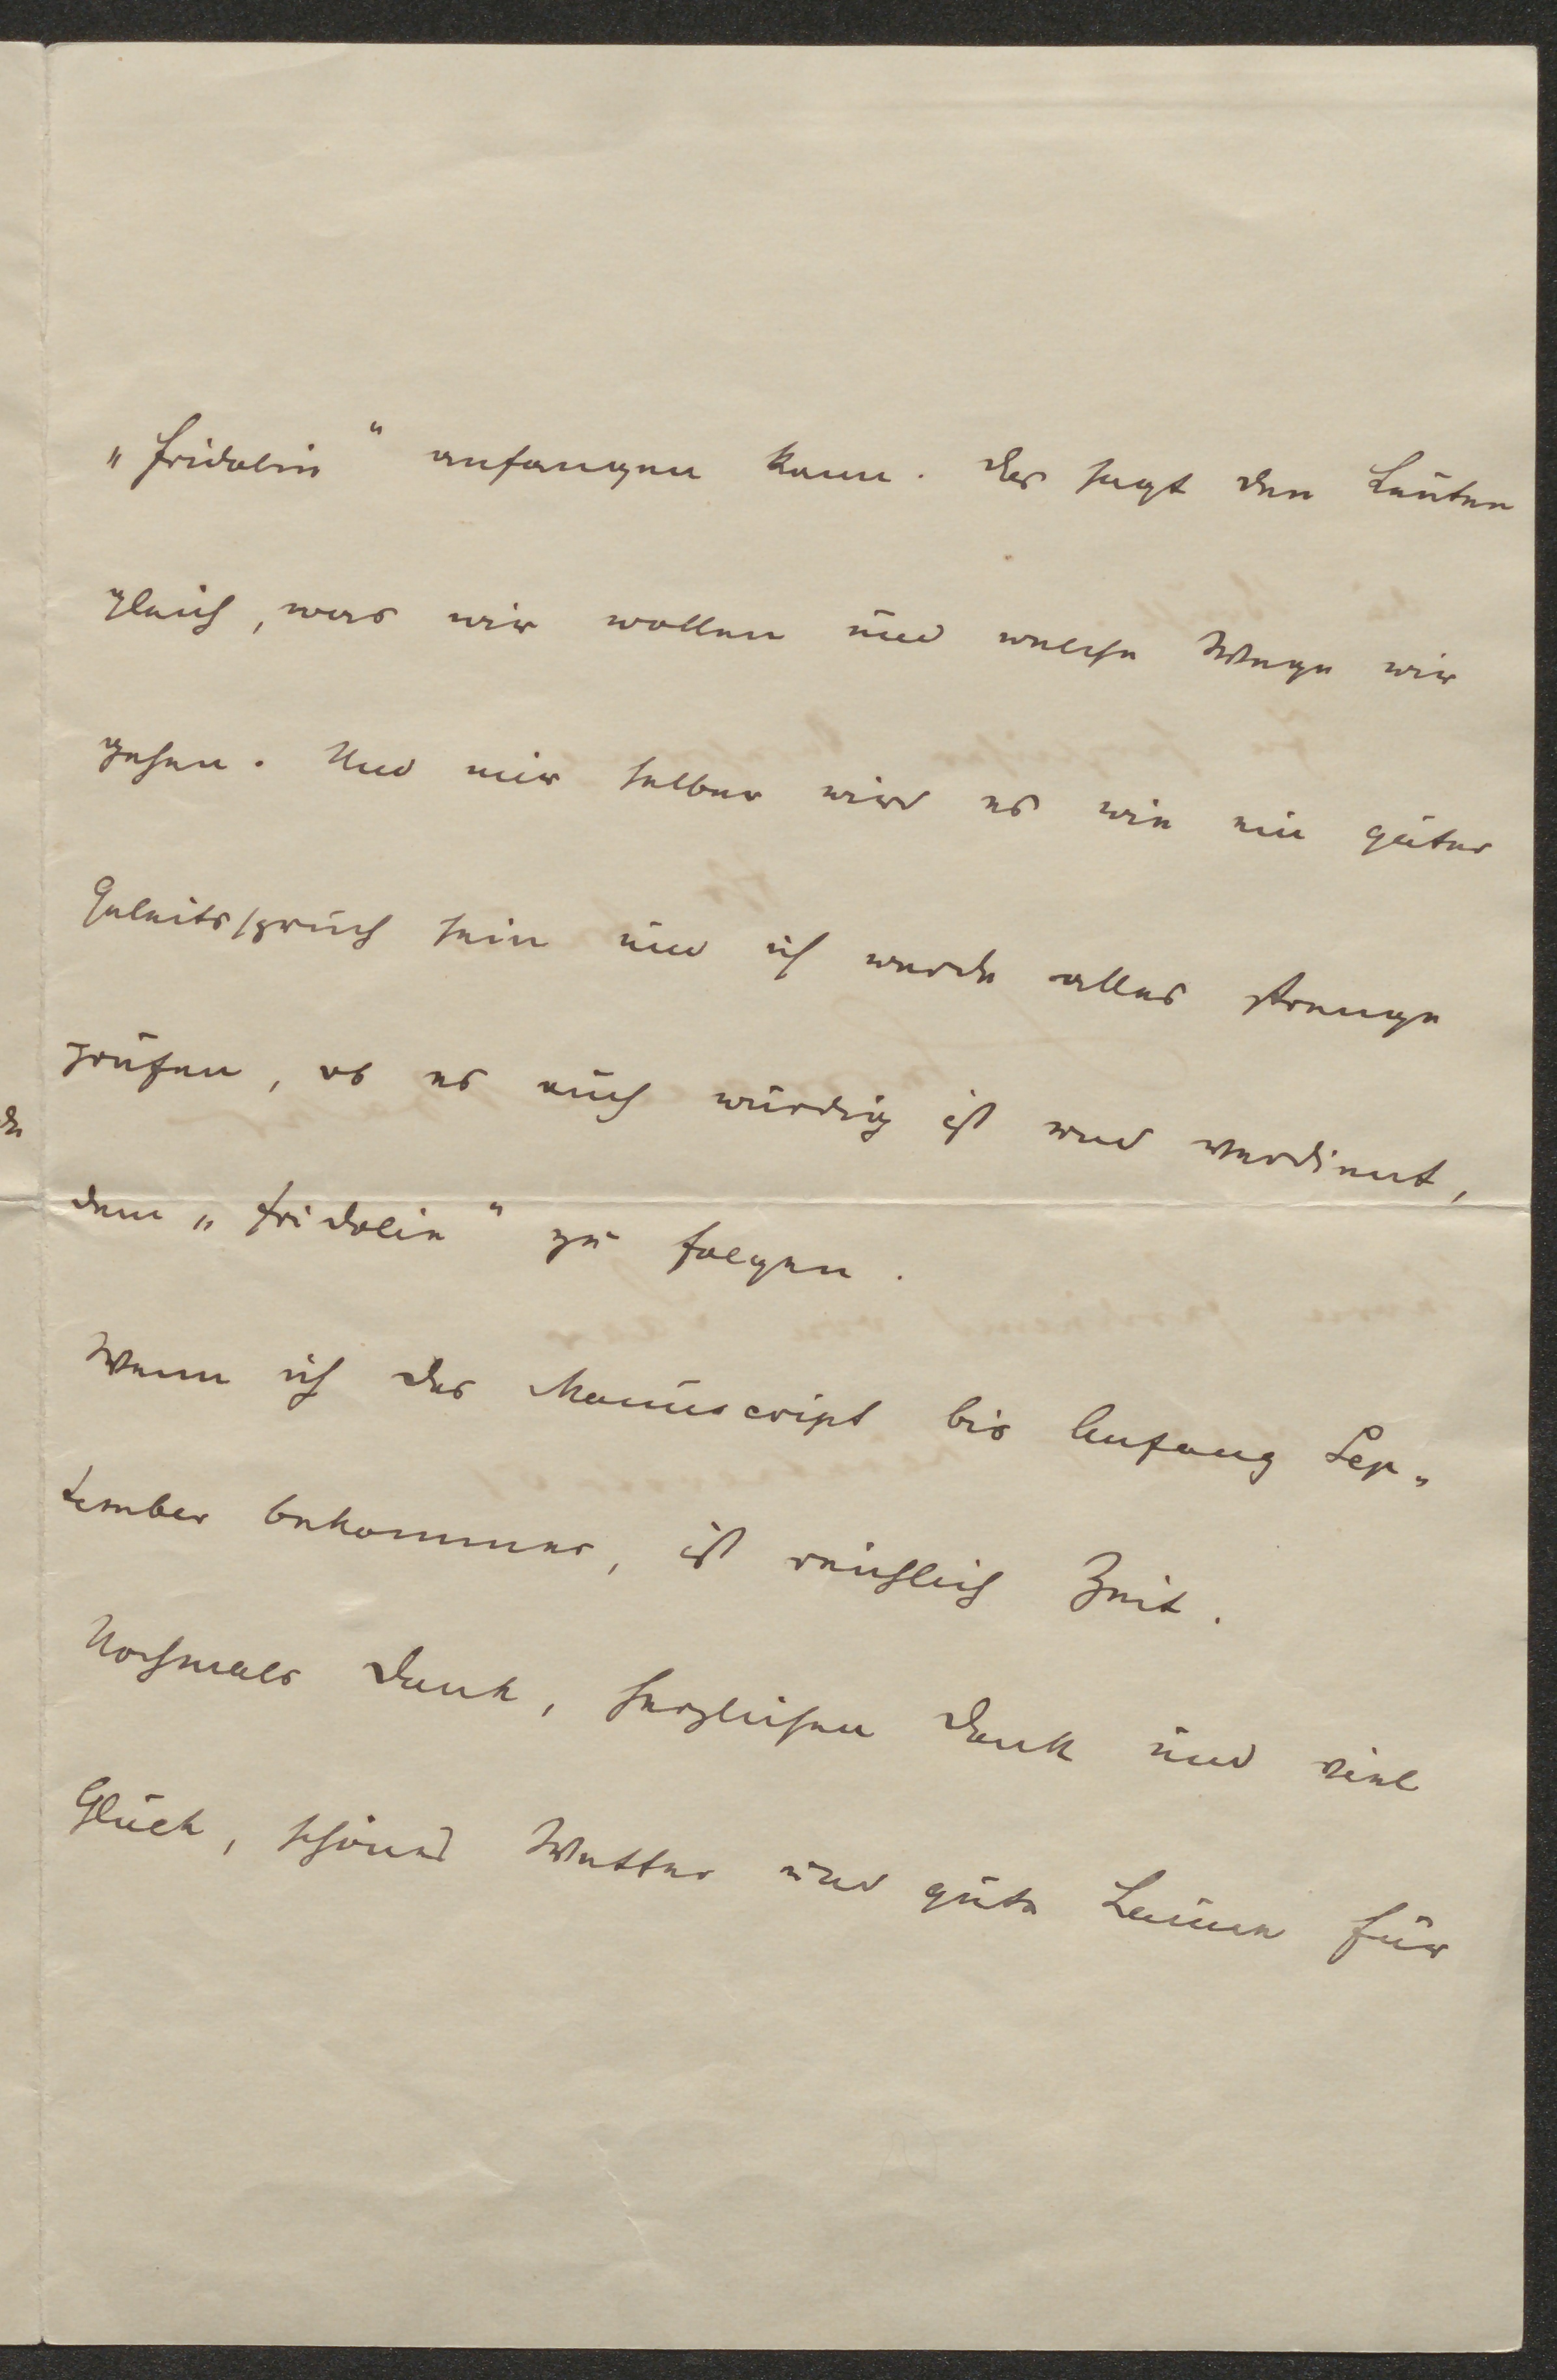 „Fridolin“ anfangen kann. Das sagt den Leuten
gleich, was wir wollen und welche Wege wir
gehen. Und mir selber wird es wie ein guter
Geleitspruch sein und ich werde alles strenge
prüfen, ob es auch würdig ist und verdient,
dem „Fridolin“ zu folgen.
Wenn ich das Manuscript bis Anfang Sep-
tember bekomme, ist reichlich Zeit.
Nochmals Dank, herzlichen Dank und viel
Glück, schönes Wetter und gute Laune für